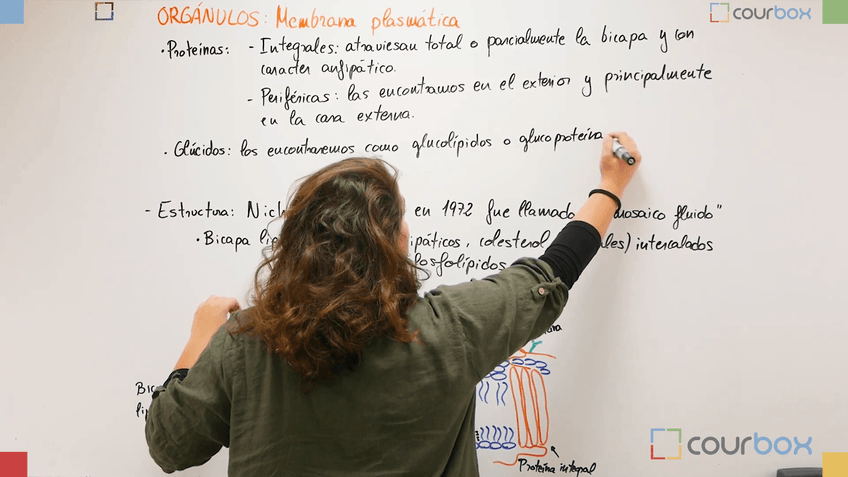 ORGÁNULOS: Membrana plasmática
courbox
· Proteínas: - Integrales: atraviesan total o parcialmente la bicapa y con
caracter anfipático.
- Periféricas: las encontramos en el exterior y principalmente
en la cara externa.
· Glúcidos: los encontraremos como glucolípidos o glucoproteína
- Estructura: en 1972 fue llamado mosaico fluido"
· Bicapa colesterol intercalados
fosfolípidos
Proteína integral
courbox